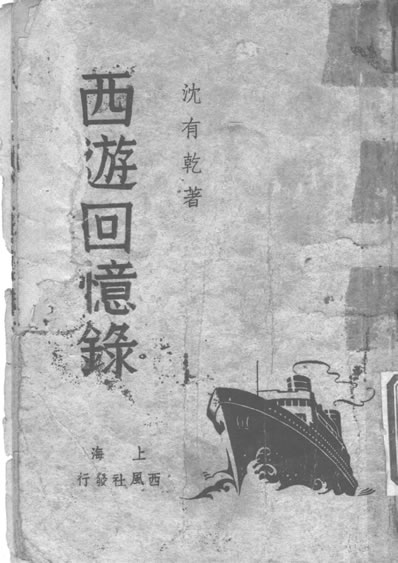 沈有乾著
西遊回憶錄
上海
西風社發行